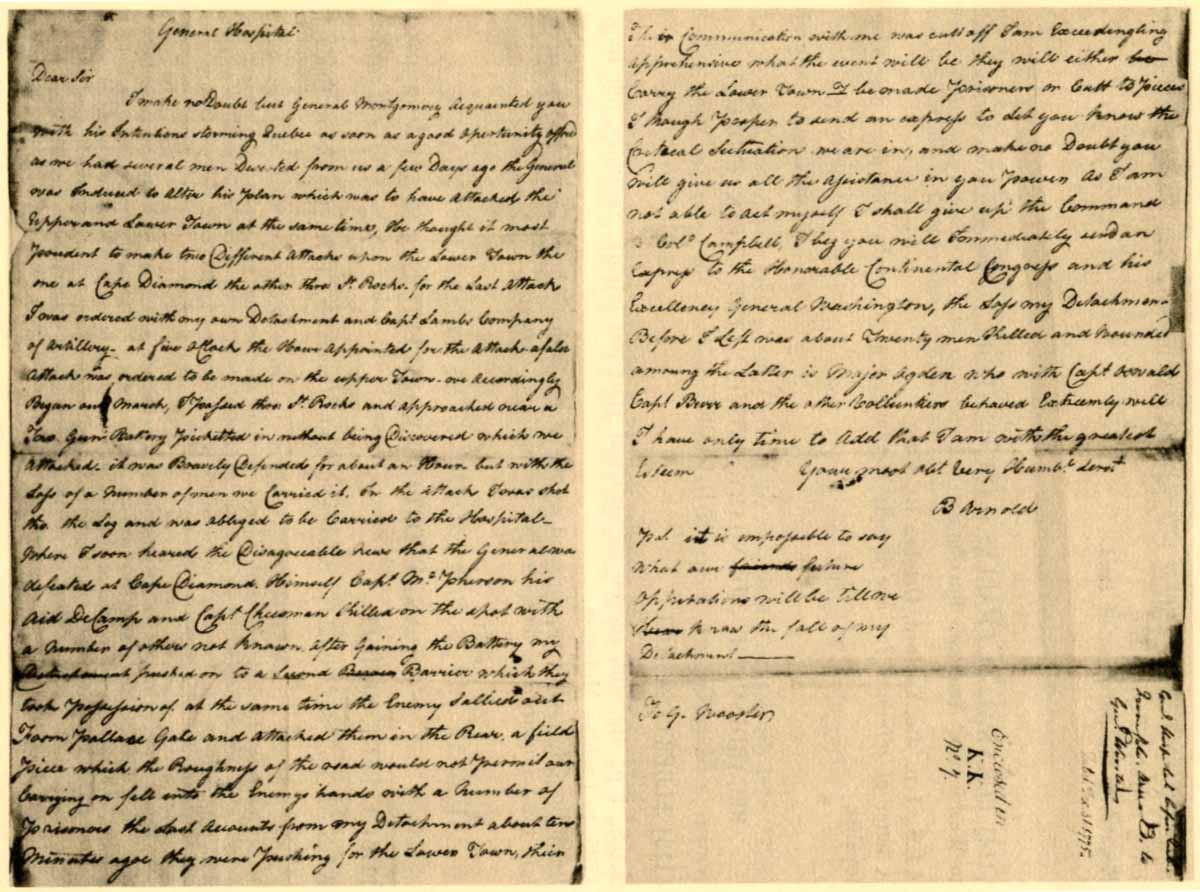 General Hospital
Dear Sir
I make no Doubt but General Montgomery Acquainted you
with his Intentions storming Quebec as soon as a good Opertunity offred
as we had several men Deserted from us a few Days ago the General
was Induced to Alter his Plan which was to have Attacked the
Upper and Lower Town at the same time, He thought it most
Prudent to make two Different Attacks upon the Lower Town the
one at Cape Diamond the other thro St. Rocks. for the Last Attack
I was ordered with my own Detachment and Capt. Lambs Company
of Artillery- at five oClock the Hour Appointed for the Attack a false
Attack was ordered to be made on the upper Town- we Accordingly
Began our March, I passed thro St. Rocks and approached near a
Two Gun Battery Picketted in without being Discovered which we
Attacked. it was Bravely Defended for about an Hour but with the
Loss of a Number of men we Carried it. In the attack I was shot
thro the Leg and was obliged to be Carried to the Hospital-
Where I soon heared the Disagreeable News that the General was
defeated at Cape Diamond, Himself Capt. Mc.Pherson his
Aid DeCamp and Capt. Cheesman Killed on the spot with
a Number of others not Known. after Gaining the Battery my
Detachment pushed on to a Second Barrier which they
took Possession of at the same time the Enemy Sallied out
From Pallace Gate and attacked them in the Rear, a field
Piece which the Roughness of the road would not Permit our
Carrying on fell into the Enemys hands with a Number of
Prisoners the Last Accounts from my Detachment about ten
Minutes agoe they were Pushing for the Lower Town, thier
Communication with me was cutt off I am Exceedingling
apprehensive what the event will be they will either
Carry the Lower Town be made Prisoners or Cutt to Pieces
I though Proper to send an express to let you Know the
Critocal Situation we are in, and make no Doubt you
will give us all the Assistance in you Power, As I am
not able to act myself I shall give up the Command
Colo. Campbell, I beg you will Immediately send an
Express to the Honorable Continental Congress and his
Excellency General Washington, the Loss my Detachment
Before I Left was about Twenty men Killed and Wounded
amoung the Latter is Major Ogden who with Capt Oswald
Capt Burr and the other Volluntiers behaved Extreemly well
I have only time to Add that I am with the greatest
Esteem Your most obt Very Humbe. Servt.
B Arnold
it is impossible to say
What our future
Opperations will be till we
Know the fall of my
Detachment
To G. Wooster,
Enclosed in
K.K.
No 7.